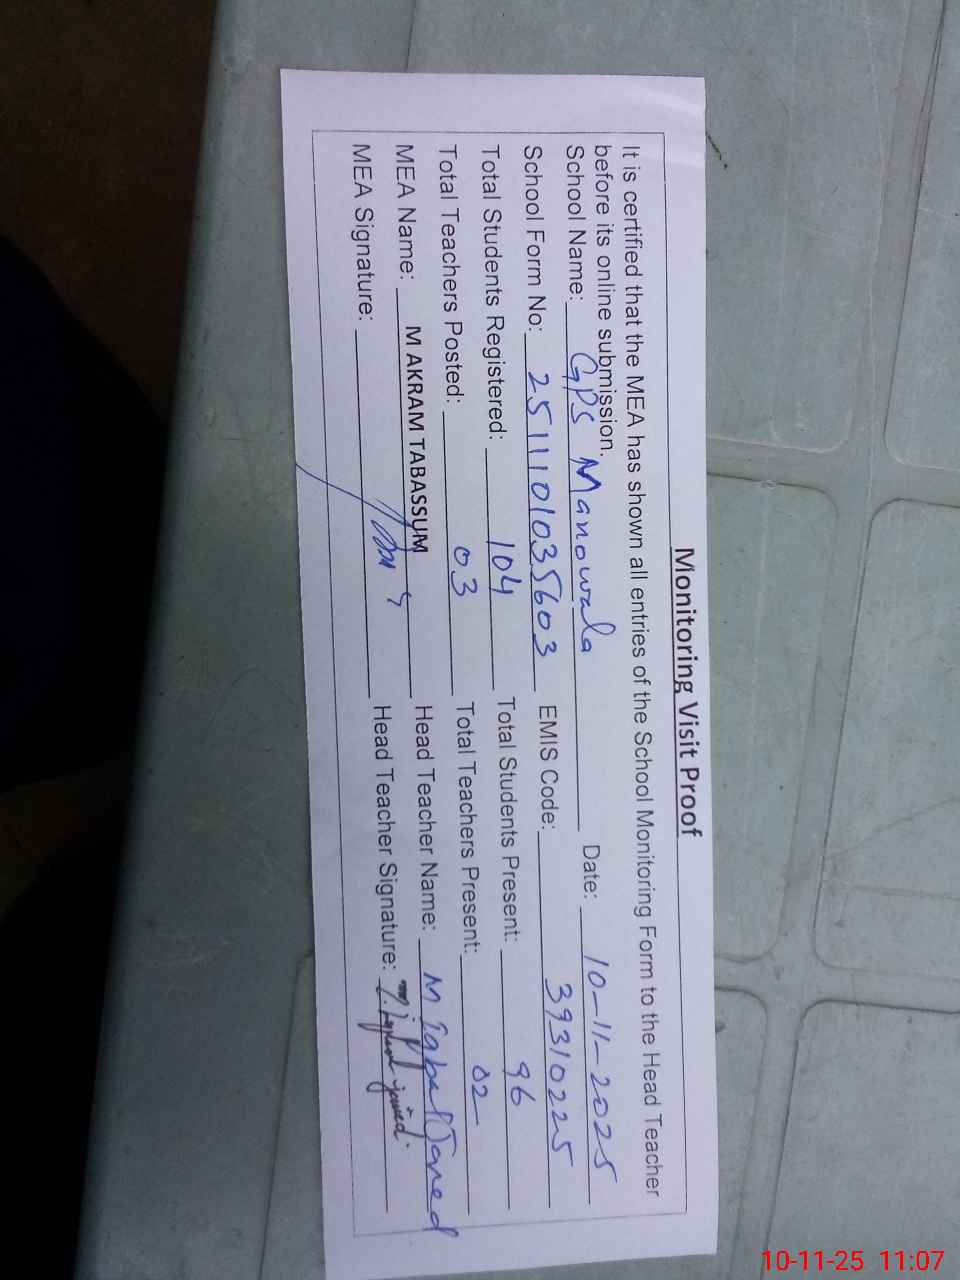 Monitoring Visit Proof
It is certified that the MEA has shown all entries of the School Monitoring Form to the Head Teacher
before its online submission.
School Name: GPS Manowala Date: 10-11-2025
School Form No: 2511101035603 EMIS Code: 39310225
Total Students Registered: 104 Total Students Present: 96
Total Teachers Posted: 03 Total Teachers Present: 02
MEA Name: M AKRAM TABASSUM Head Teacher Name: M Iqbal Javed
MEA Signature: Head Teacher Signature:
10-11-25 11:07